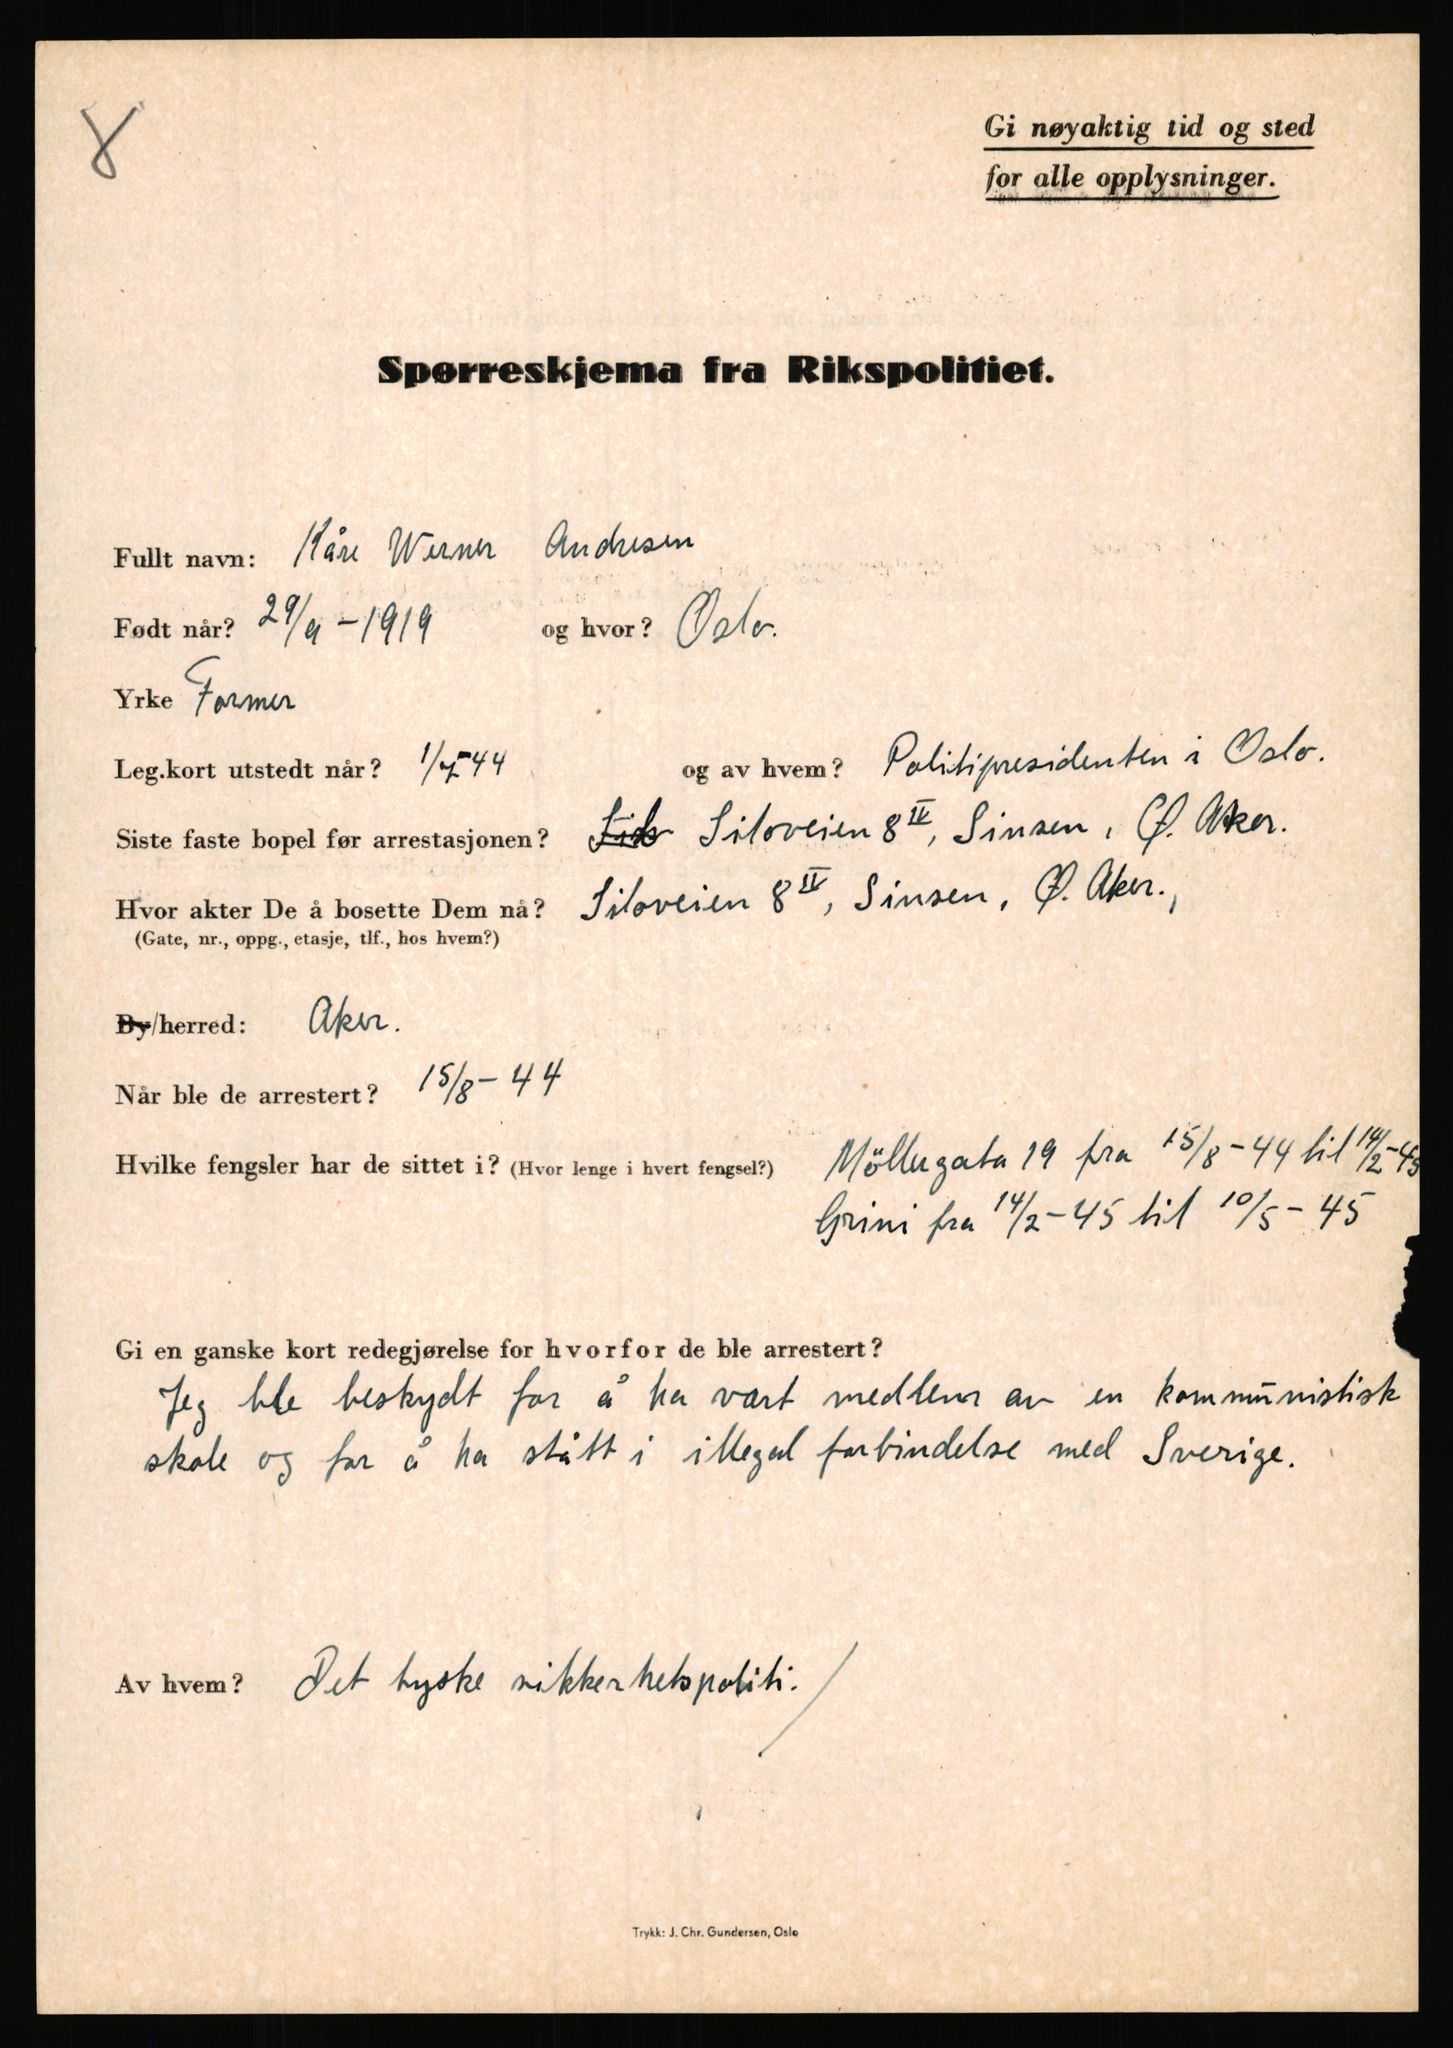 8
Gi nøyaktig tid og sted
for alle opplysninger.
Spørreskjema fra Rikspolitiet.
Fullt navn: Kåre Werner Andresen
Født når? 29/9 - 1919 og hvor? Oslo.
Yrke Former
Leg.kort utstedt når? og av hvem? Politipresidenten i Oslo.
Siste faste bopel før arrestasjonen? Siloveien 8 IV, Sinsen, Ø. Aker.
Hvor akter De å bosette Dem nå? Siloveien 8 IV, Sinsen, Ø. Aker.,
(Gate, nr., oppg., etasje, tlf., hos hvem?)
By/herred: Aker.
Når ble de arrestert? 15/8 - 44
Hvilke fengsler har de sittet i? (Hvor lenge i hvert fengsel?) Möllergata 19 fra 15/8 - 44 til 14/2 - 45
Grini fra 14/2 - 45 til 10/5 - 45
Gi en ganske kort redegjørelse for hvorfor de ble arrestert?
Jeg ble beskydt for å ha vært medlem av en kommunistisk
skole og for å ha stått i illegal forbindelse med Sverige.
Av hvem? Det tyske sikkerhetspoliti.
Trykk: J. Chr. Gundersen, Oslo